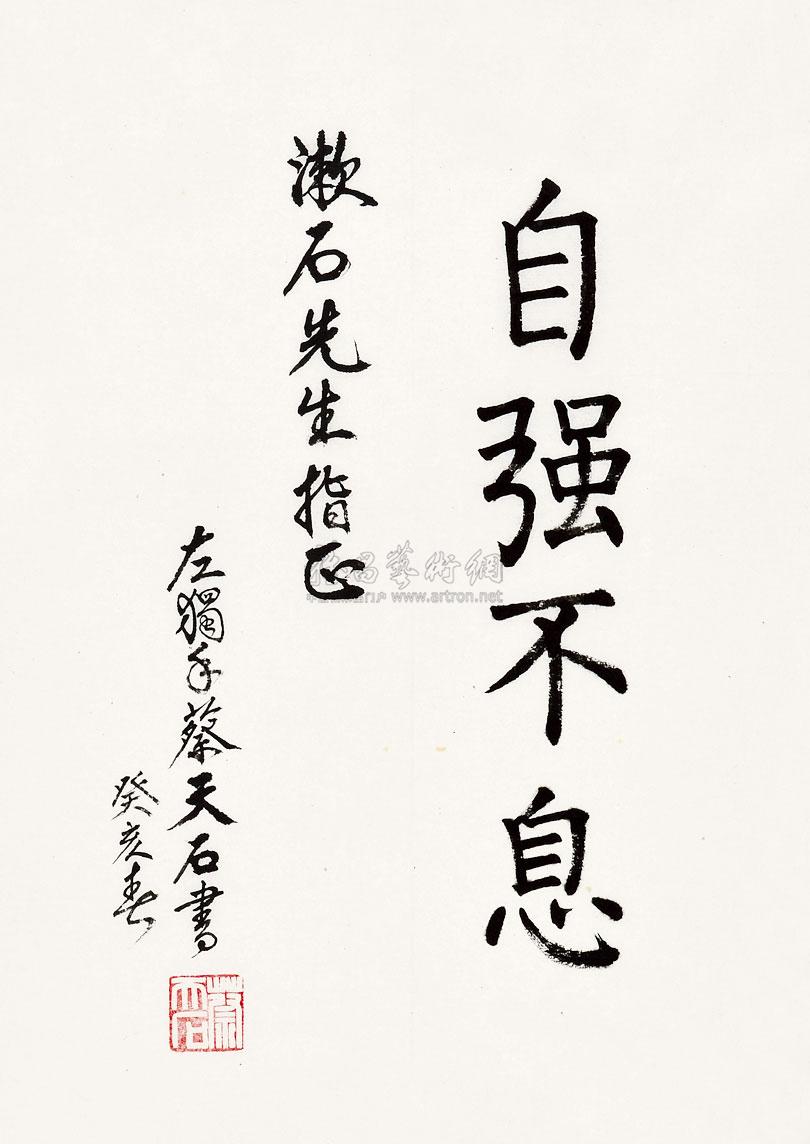 自强不息
漱石先生指正
左獨手蔡天石書
癸亥春
蔡天石
www.artron.net